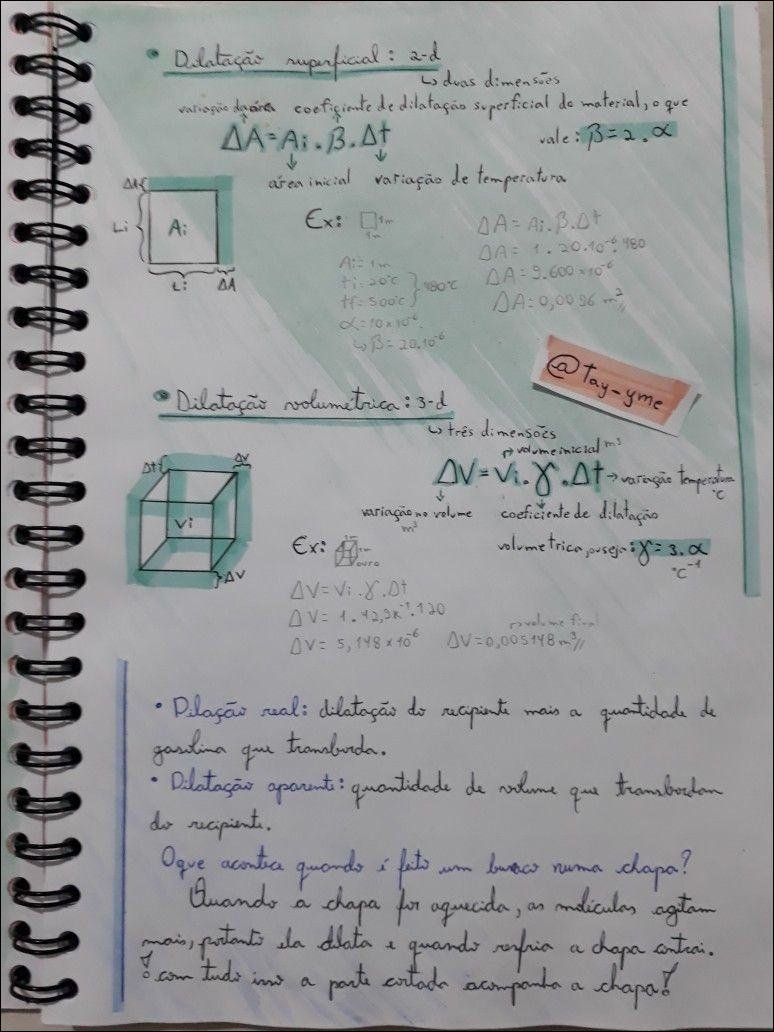 • Dilatação superficial: 2-d
↳ duas dimensões
variação da área coeficiente de dilatação superficial do material, o que
ΔA = Ai . β . Δt vale: β = 2 . α
área inicial variação de temperatura
Δt
Li Ai
Li ΔA
Ex: 1m
1m
Ai = 1m
ti = 20°C
tf = 500°C } 480°C
α = 10 x 10⁻⁶
↳ β = 20.10⁻⁶
ΔA = Ai . β . Δt
ΔA = 1 . 20 . 10⁻⁶ . 480
ΔA = 9.600 x 10⁻⁶
ΔA = 0,0096 m² //
@tay_yme
• Dilatação volumetrica: 3-d
↳ três dimensões
↱ volume inicial m³
ΔV = Vi . γ . Δt → variação temperatura
°C
variação no volume coeficiente de dilatação
m³
volumetrica, ou seja: γ = 3 . α
°C⁻¹
Δt ΔV
Vi
ΔV
Ex: 1m
ouro
ΔV = Vi . γ . Δt
ΔV = 1 . 42,9x⁻¹ . 120
ΔV = 5,148 x 10⁻⁶ ΔV = 0,005148 m³ //
↱ volume final
• Dilação real: dilatação do recipiente mais a quantidade de
gasolina que transborda.
• Dilatação aparente: quantidade de volume que transbordam
do recipiente.
Oque acontece quando é feito um buraco numa chapa?
Quando a chapa for aquecida, as moléculas agitam
mais, portanto ela dilata e quando resfria a chapa contrai.
! com tudo isso a parte cortada acompanha a chapa!